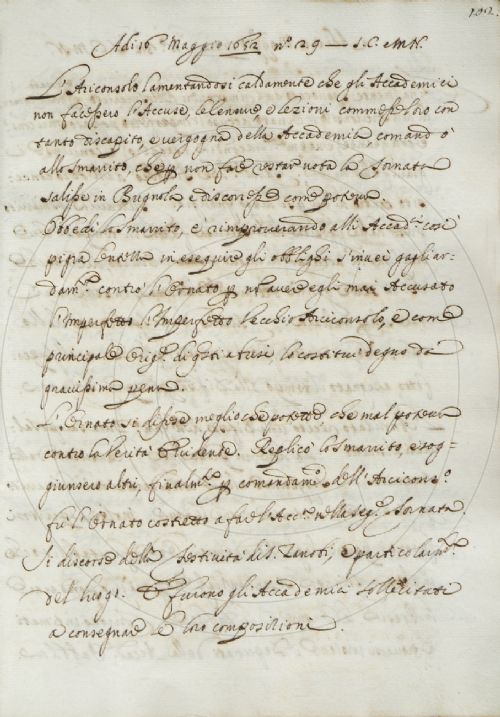 192.
Adi 16 Maggio 1652 nº. 29 — S.C. e M.N.
L'Arciconsolo lamentandosi caldamente che gli Accademici
non facessero l'Accuse, le Censure, e lezioni commesse loro con
tanto discapito, e vergogna della Accademia, comandò
allo Smarrito, che p non far restar vota la Tornata
salisse in Bugnola, e discorresse come poteva
Obbedì lo Smarrito, e rimproverando alli Accad.ci così
pigra lentezza in eseguire gli obblighi s'inveì gagliar-
dam.te contro l'Ornato p nō aver egli mai Accusato
l'Imperfetto l'Imperfetto Vecchio Arciconsolo, e come
principale orig.e di q.sti abusi, lo costituì degno di
gravissime pene.
L'Ornato si difese meglio che potette che mal poteva
contro la Verità Evidente. Replicò lo Smarrito, e sog=
giunsero altri, finalm.te p comandam.to dell'Arcicons.o
fu l'Ornato costretto a far l'Acc.a nella seg.te Tornata.
Si discorse della festività di S. Zanobi, e particolarm.te
del luogo. E furono gli Accademici sollecitati
a consegnar le loro composizioni.